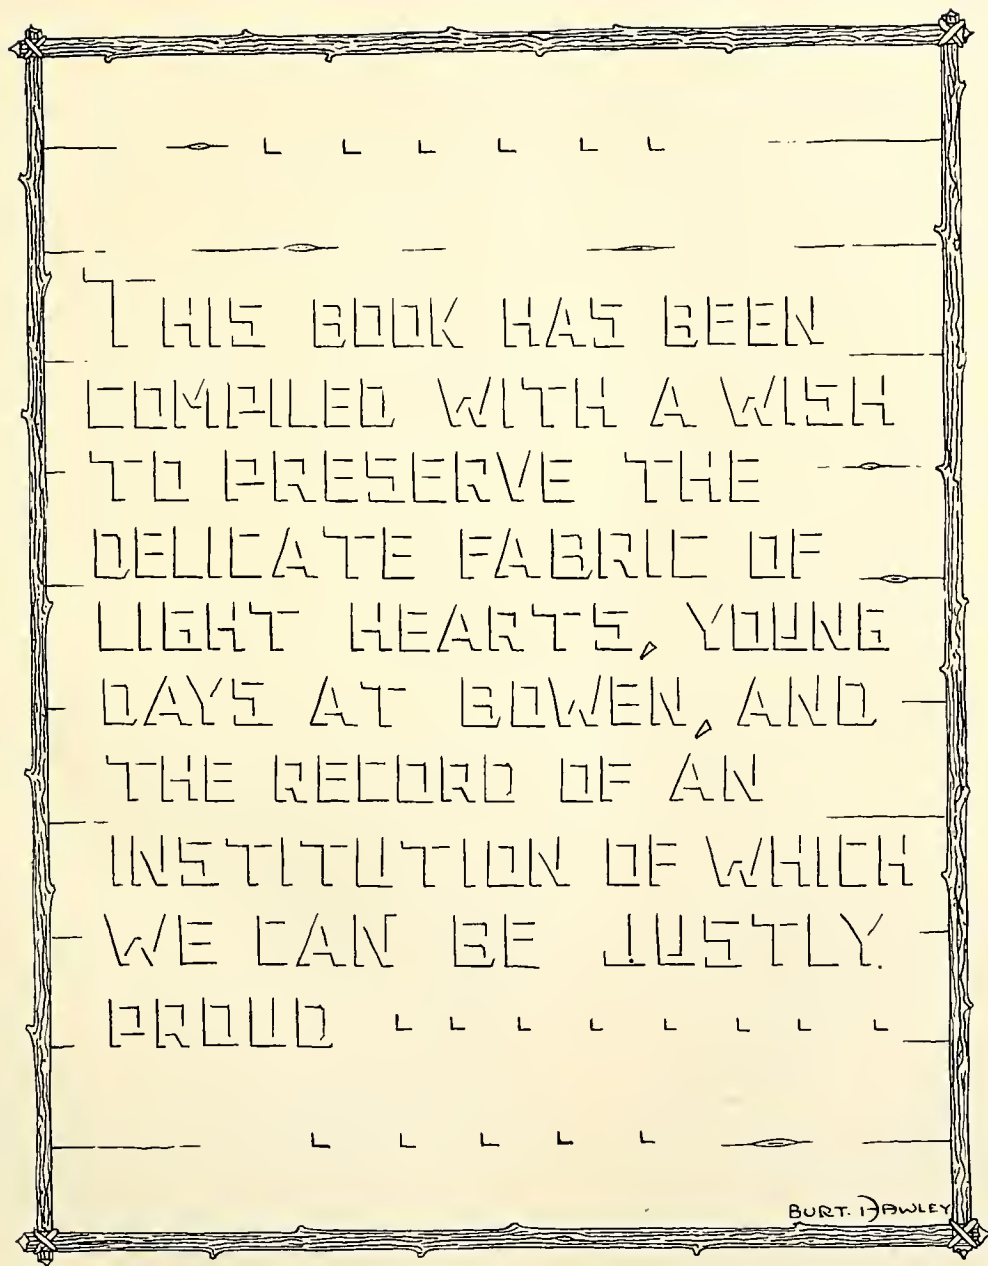 THIS BOOK HAS BEEN
COMPILED WITH A WISH
TO PRESERVE THE
DELICATE FABRIC OF
LIGHT HEARTS, YOUNG
DAYS AT BOWEN, AND
THE RECORD OF AN
INSTITUTION OF WHICH
WE CAN BE JUSTLY
PROUD ........
BURT. HAWLEY